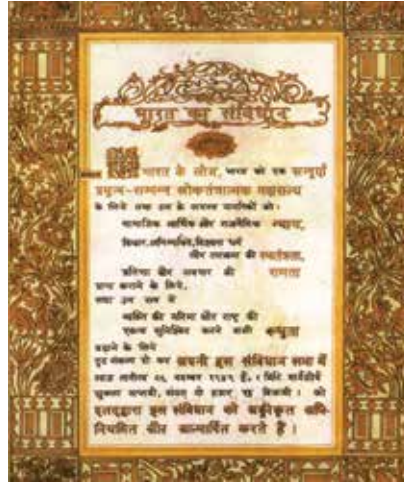 भारत का संविधान
भारत के लोग, भारत को एक सम्पूर्ण
प्रभुत्व-सम्पन्न लोकतंत्रात्मक गणराज्य
के लिये तथा उस के समस्त नागरिकों को:
सामाजिक आर्थिक और राजनैतिक न्याय,
विचार, अभिव्यक्ति, विश्वास धर्म
और उपासना की स्वतंत्रता,
प्रतिष्ठा और अवसर की समता
प्राप्त कराने के लिये,
तथा उन सब में
व्यक्ति की गरिमा और राष्ट्र की
एकता सुनिश्चित करने वाली बन्धुता
बढ़ाने के लिये
दृढ़ संकल्प हो कर अपनी इस संविधान सभा में
आज तारीख २६ नवम्बर १९४९ ई.
शुक्ला सप्तमी, संवत् दो हजार छः विक्रमी । को
एतद्द्वारा इस संविधान को अङ्गीकृत अधि-
नियमित और आत्मार्पित करते हैं ।